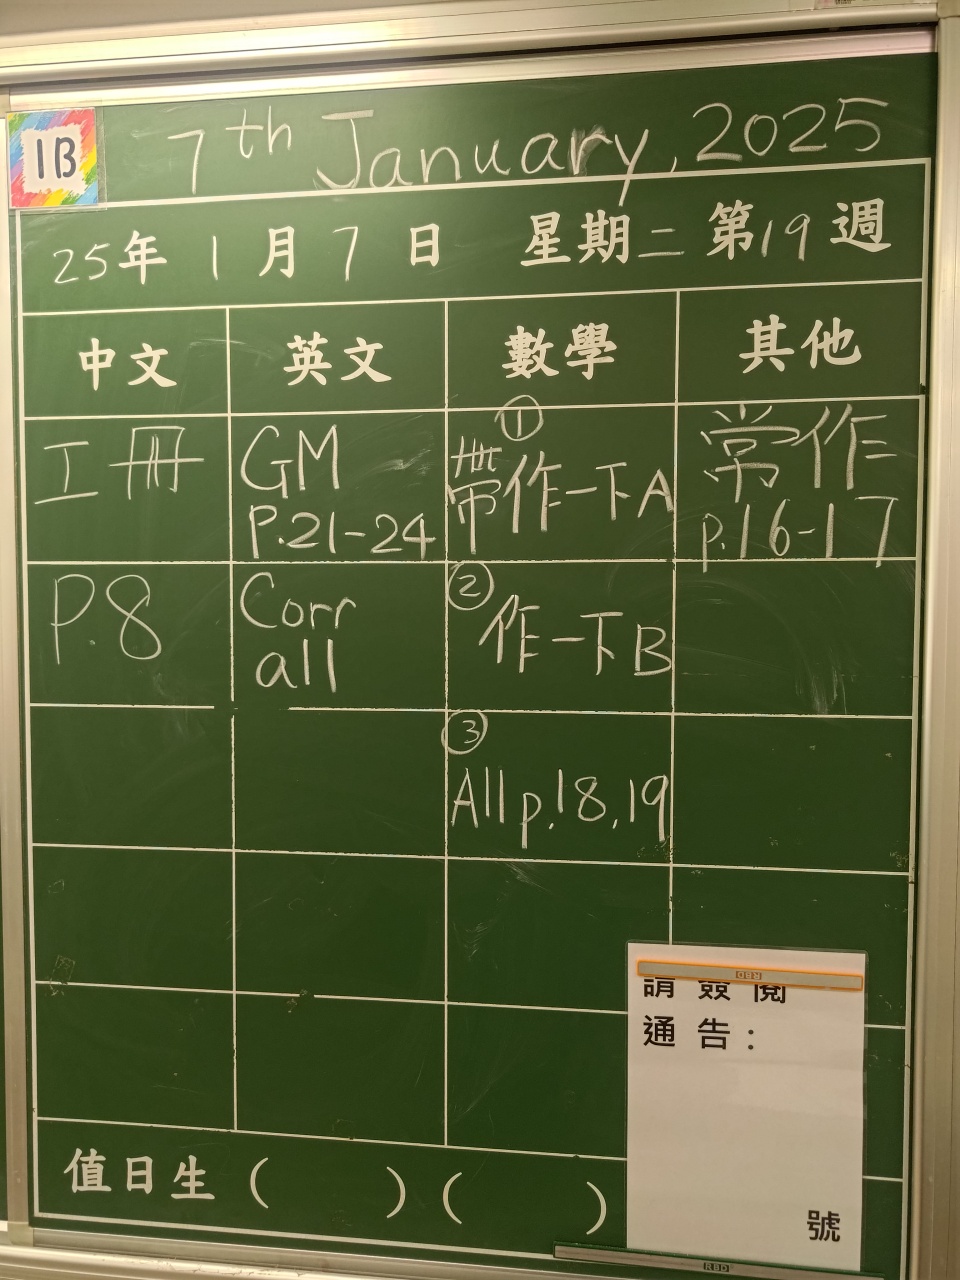 1B
7th January, 2025
25年 1月 7日 星期二 第19週
中文 英文 數學 其他
工冊
P.8
GM
P.21-24
Corr
all
①
帶作一下A
②
作一下B
③
All p.18,19
常作
p.16-17
請簽閱
通告：
號
值日生（ ）（ ）
RBD
RBD